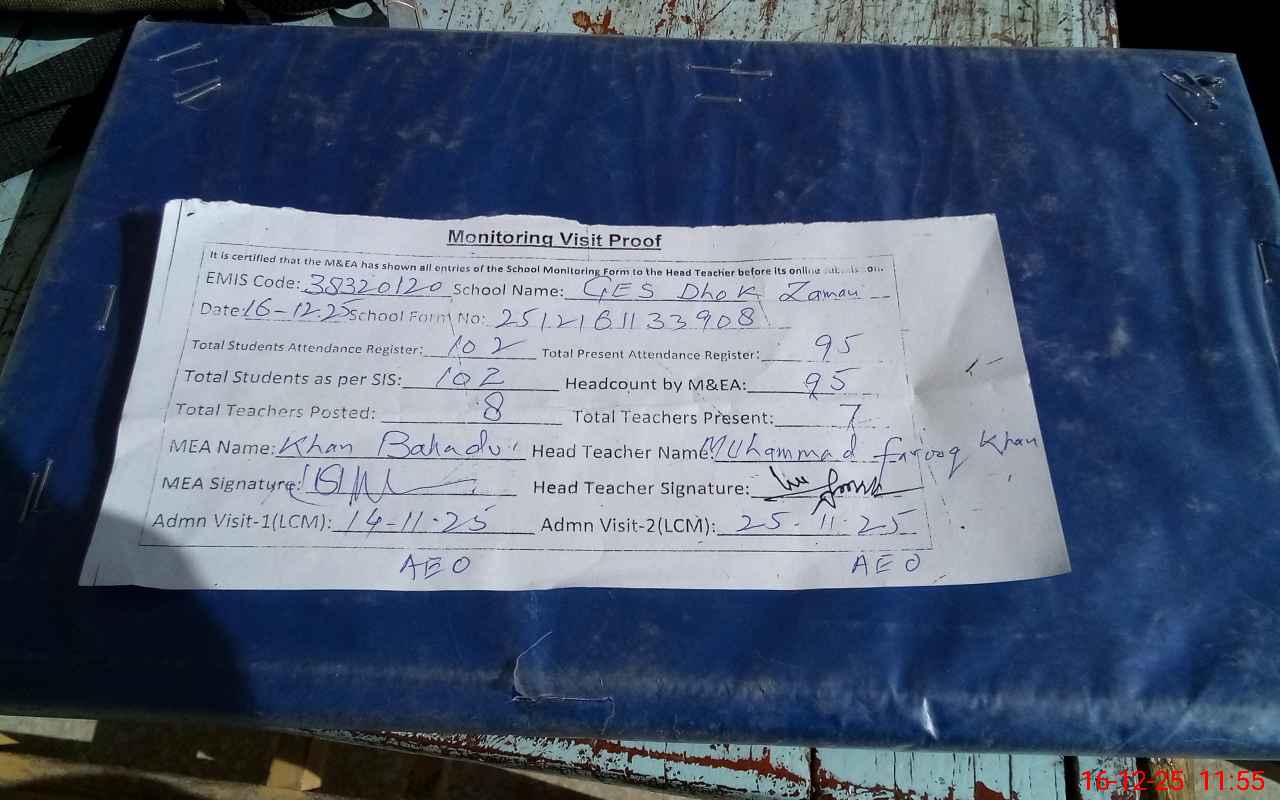 Monitoring Visit Proof
It is certified that the M&EA has shown all entries of the School Monitoring Form to the Head Teacher before its online submission.
EMIS Code: 38320120 School Name: GES Dhok Zaman
Date: 16-12.25 School Form No: 2512161133908
Total Students Attendance Register: 102 Total Present Attendance Register: 95
Total Students as per SIS: 102 Headcount by M&EA: 95
Total Teachers Posted: 8 Total Teachers Present: 7
MEA Name: Khan Bahadur Head Teacher Name: Muhammad Farooq Khan
MEA Signature: Head Teacher Signature:
Admn Visit-1(LCM): 14-11-25 Admn Visit-2(LCM): 25-11-25
AEO AEO
16-12-25 11:55